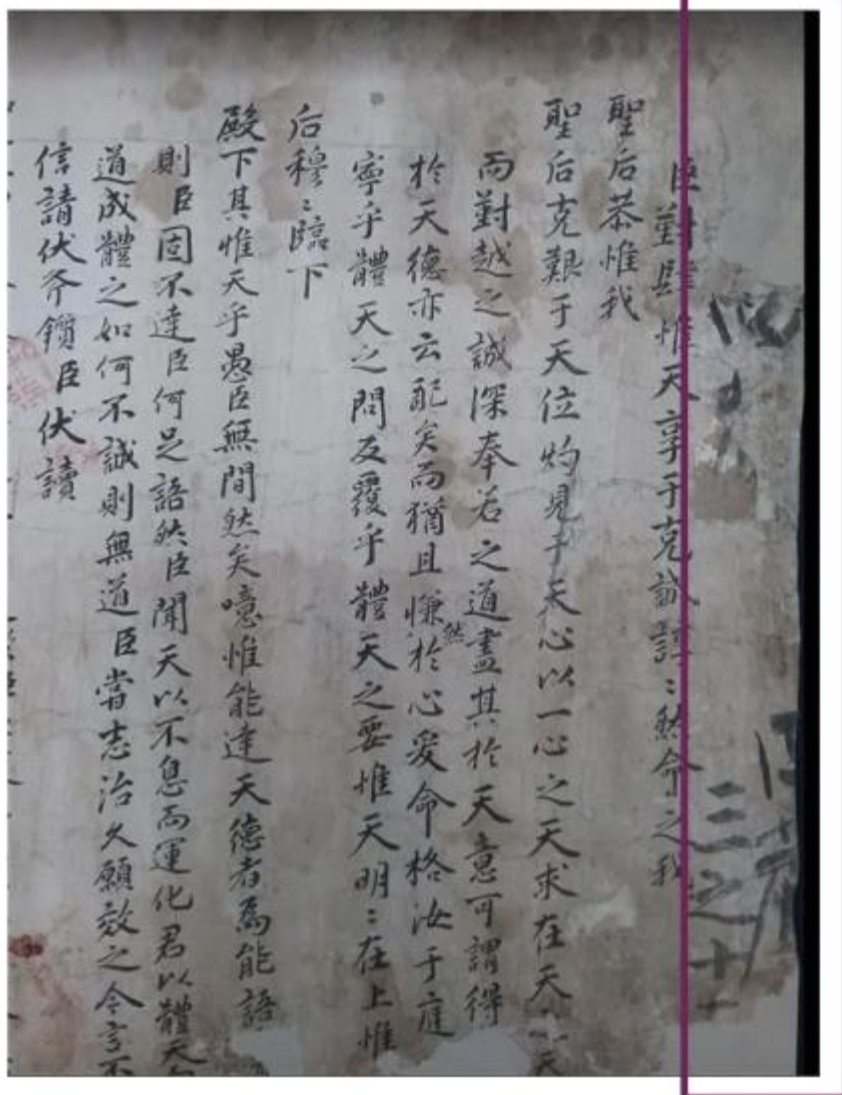 臣對肆惟天享于克誠諄〻然命之我
聖后恭惟我
聖后克艱于天位灼見于天心以一心之天求在天
而對越之誠深奉若之道盡其於天意可謂得
於天德亦云配矣而猶且慊然於心爰命格汝于庭
寧乎體天之問反覆乎體天之要惟天明〻在上惟
后穆〻臨下
殿下其惟天乎愚臣無間然矣噫惟能達天德者爲能語
則臣固不達臣何足語然臣聞天以不息而運化君以體天
道成體之如何不誠則無道臣嘗志治久願效之今言不
信請伏斧鑕臣伏讀
三之十